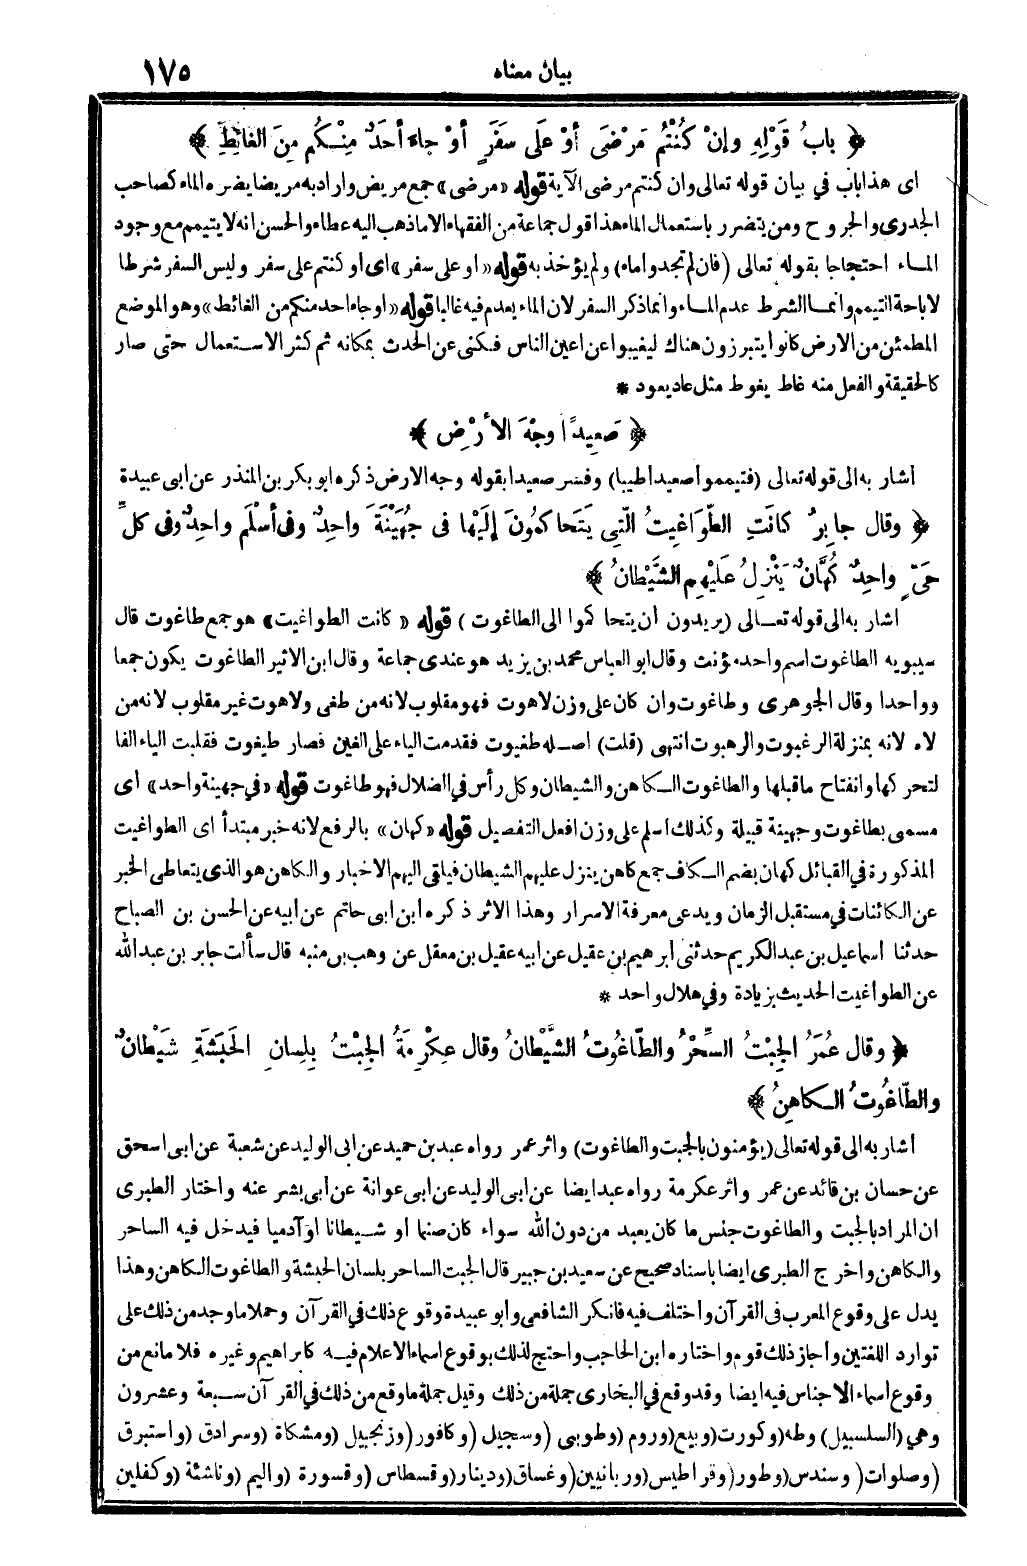 بيان معناه ١٧٥
﴿ بابُ قَوْلِهِ وإنْ كُنْتُمْ مَرْضَى أوْ عَلَى سَفَرٍ أوْ جاءَ أحَدٌ مِنْكُم مِنَ الغائِطِ ﴾
اى هذا باب في بيان قوله تعالى وان كنتم مرضى الآية قوله «مرضى» جمع مريض واراد به مريضا يضره الماء كصاحب
الجدرى والجروح ومن يتضرر باستعمال الماء هذا قول جماعة من الفقهاء الا ما ذهب اليه عطاء والحسن انه لا يتيمم مع وجود
الماء احتجاجا بقوله تعالى (فان لم تجدوا ماء) ولم يؤخذ به قوله «او على سفر» اى او كنتم على سفر وليس السفر شرطا
لاباحة التيمم وانما الشرط عدم الماء وانما ذكر السفر لان الماء يعدم فيه غالبا قوله «او جاء احد منكم من الغائط» وهو الموضع
المطمئن من الارض كانوا يتبرزون هناك ليغيبوا عن اعين الناس فكنى عن الحدث بمكانه ثم كثر الاستعمال حتى صار
كالحقيقة والفعل منه غاط يغوط مثل عاد يعود *
﴿ صَعِيدًا وجْهَ الأرْضِ ﴾
اشار به الى قوله تعالى (فتيمموا صعيدا طيبا) وفسر صعيدا بقوله وجه الارض ذكره ابو بكر بن المنذر عن ابى عبيدة
﴿ وقال جابِرٌ كانَتِ الطّوَاغِيتُ الّتِى يَتَحاكمُونَ إلَيْها فى جُهَيْنَةَ واحِدٌ وفى أسْلَمَ واحِدٌ وفى كلِّ
حَىٍّ واحِدٌ كُهَّانٌ يَنْزِلُ عَلَيْهِم الشَّيْطانُ ﴾
اشار به الى قوله تعالى (يريدون أن يتحاكموا الى الطاغوت) قوله «كانت الطواغيت» هو جمع طاغوت قال
سيبويه الطاغوت اسم واحد مؤنث وقال ابو العباس محمد بن يزيد هو عندى جماعة وقال ابن الاثير الطاغوت يكون جمعا
وواحدا وقال الجوهرى وطاغوت وان كان على وزن لاهوت فهو مقلوب لانه من طغى ولاهوت غير مقلوب لانه من
لاه لانه بمنزلة الرغبوت والرهبوت انتهى (قلت) اصله طغيوت فقدمت الياء على الغين فصار طيغوت فقلبت الياء الفا
لتحركها وانفتاح ما قبلها والطاغوت الكاهن والشيطان وكل رأس في الضلال فهو طاغوت قوله «في جهينة واحد» اى
مسمى بطاغوت وجهينة قبيلة وكذلك اسلم على وزن افعل التفصيل قوله «كهان» بالرفع لانه خبر مبتدأ اى الطواغيت
المذكورة في القبائل كهان بضم الكاف جمع كاهن ينزل عليهم الشيطان فيلقى اليهم الاخبار والكاهن هو الذى يتعاطى الخبر
عن الكائنات في مستقبل الزمان ويدعى معرفة الاسرار وهذا الاثر ذكره ابن ابى حاتم عن أبيه عن الحسن بن الصباح
حدثنا اسماعيل بن عبد الكريم حدثنى أبرهيم بن عقيل عن ابيه عقيل بن معقل عن وهب بن منبه قال سألت جابر بن عبد الله
عن الطواغيت الحديث بزيادة وفي هلال واحد *
﴿ وقال عُمَرُ الجِبْتُ السِّحْرُ والطّاغُوتُ الشَّيْطانُ وقال عِكْرِمَةُ الجِبْتُ بِلِسانِ الحَبَشَةِ شَيْطانٌ
والطّاغُوتُ الكاهِنُ ﴾
اشار به الى قوله تعالى (يؤمنون بالجبت والطاغوت) واثر عمر رواه عبد بن حميد عن ابى الوليد عن شعبة عن ابى اسحق
عن حسان بن قائد عن عمر واثر عكرمة رواه عبد ايضا عن ابى الوليد عن ابى عوانة عن أبى بشر عنه واختار الطبرى
ان المراد بالجبت والطاغوت جنس ما كان يعبد من دون الله سواء كان صنما أو شيطانا او آدميا فيدخل فيه الساحر
والكاهن واخرج الطبرى ايضا باسناد صحيح عن سعيد بن جبير قال الجبت الساحر بلسان الحبشة والطاغوت الكاهن وهذا
يدل على وقوع المعرب فى القرآن واختلف فيه فانكر الشافعى وأبو عبيدة وقوع ذلك في القرآن وحملا ما وجد من ذلك على
توارد اللغتين وأجاز ذلك قوم واختاره ابن الحاجب واحتج لذلك بوقوع اسماء الاعلام فيه كابراهيم وغيره فلا مانع من
وقوع اسماء الاجناس فيه ايضا وقد وقع في البخارى جملة من ذلك وقيل جملة ما وقع من ذلك في القرآن سبعة وعشرون
وهي (السلسبيل) وطه(وكورت(وبيع(وروم (وطوبى (وسجيل (وكافور(وزنجبيل (ومشكاة (وسرادق (واستبرق
(وصلوات( وسندس(وطور(وقراطيس(وربانيين(وغساق(ودينار(وقسطاس (وقسورة (واليم (وناشئة (وكفلين